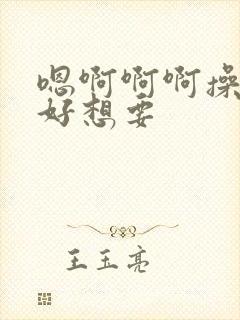 嗯啊啊啊操
好想要
王玉亮